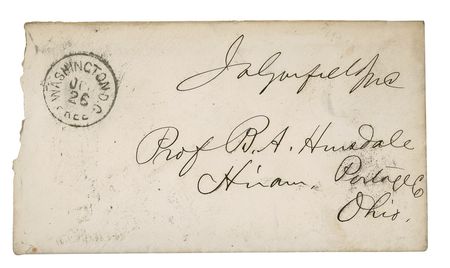 WASHINGTON D.C.
26
FREE
J A Garfield MC
Prof B. A. Hinsdale
Hiram, Portage Co
Ohio.